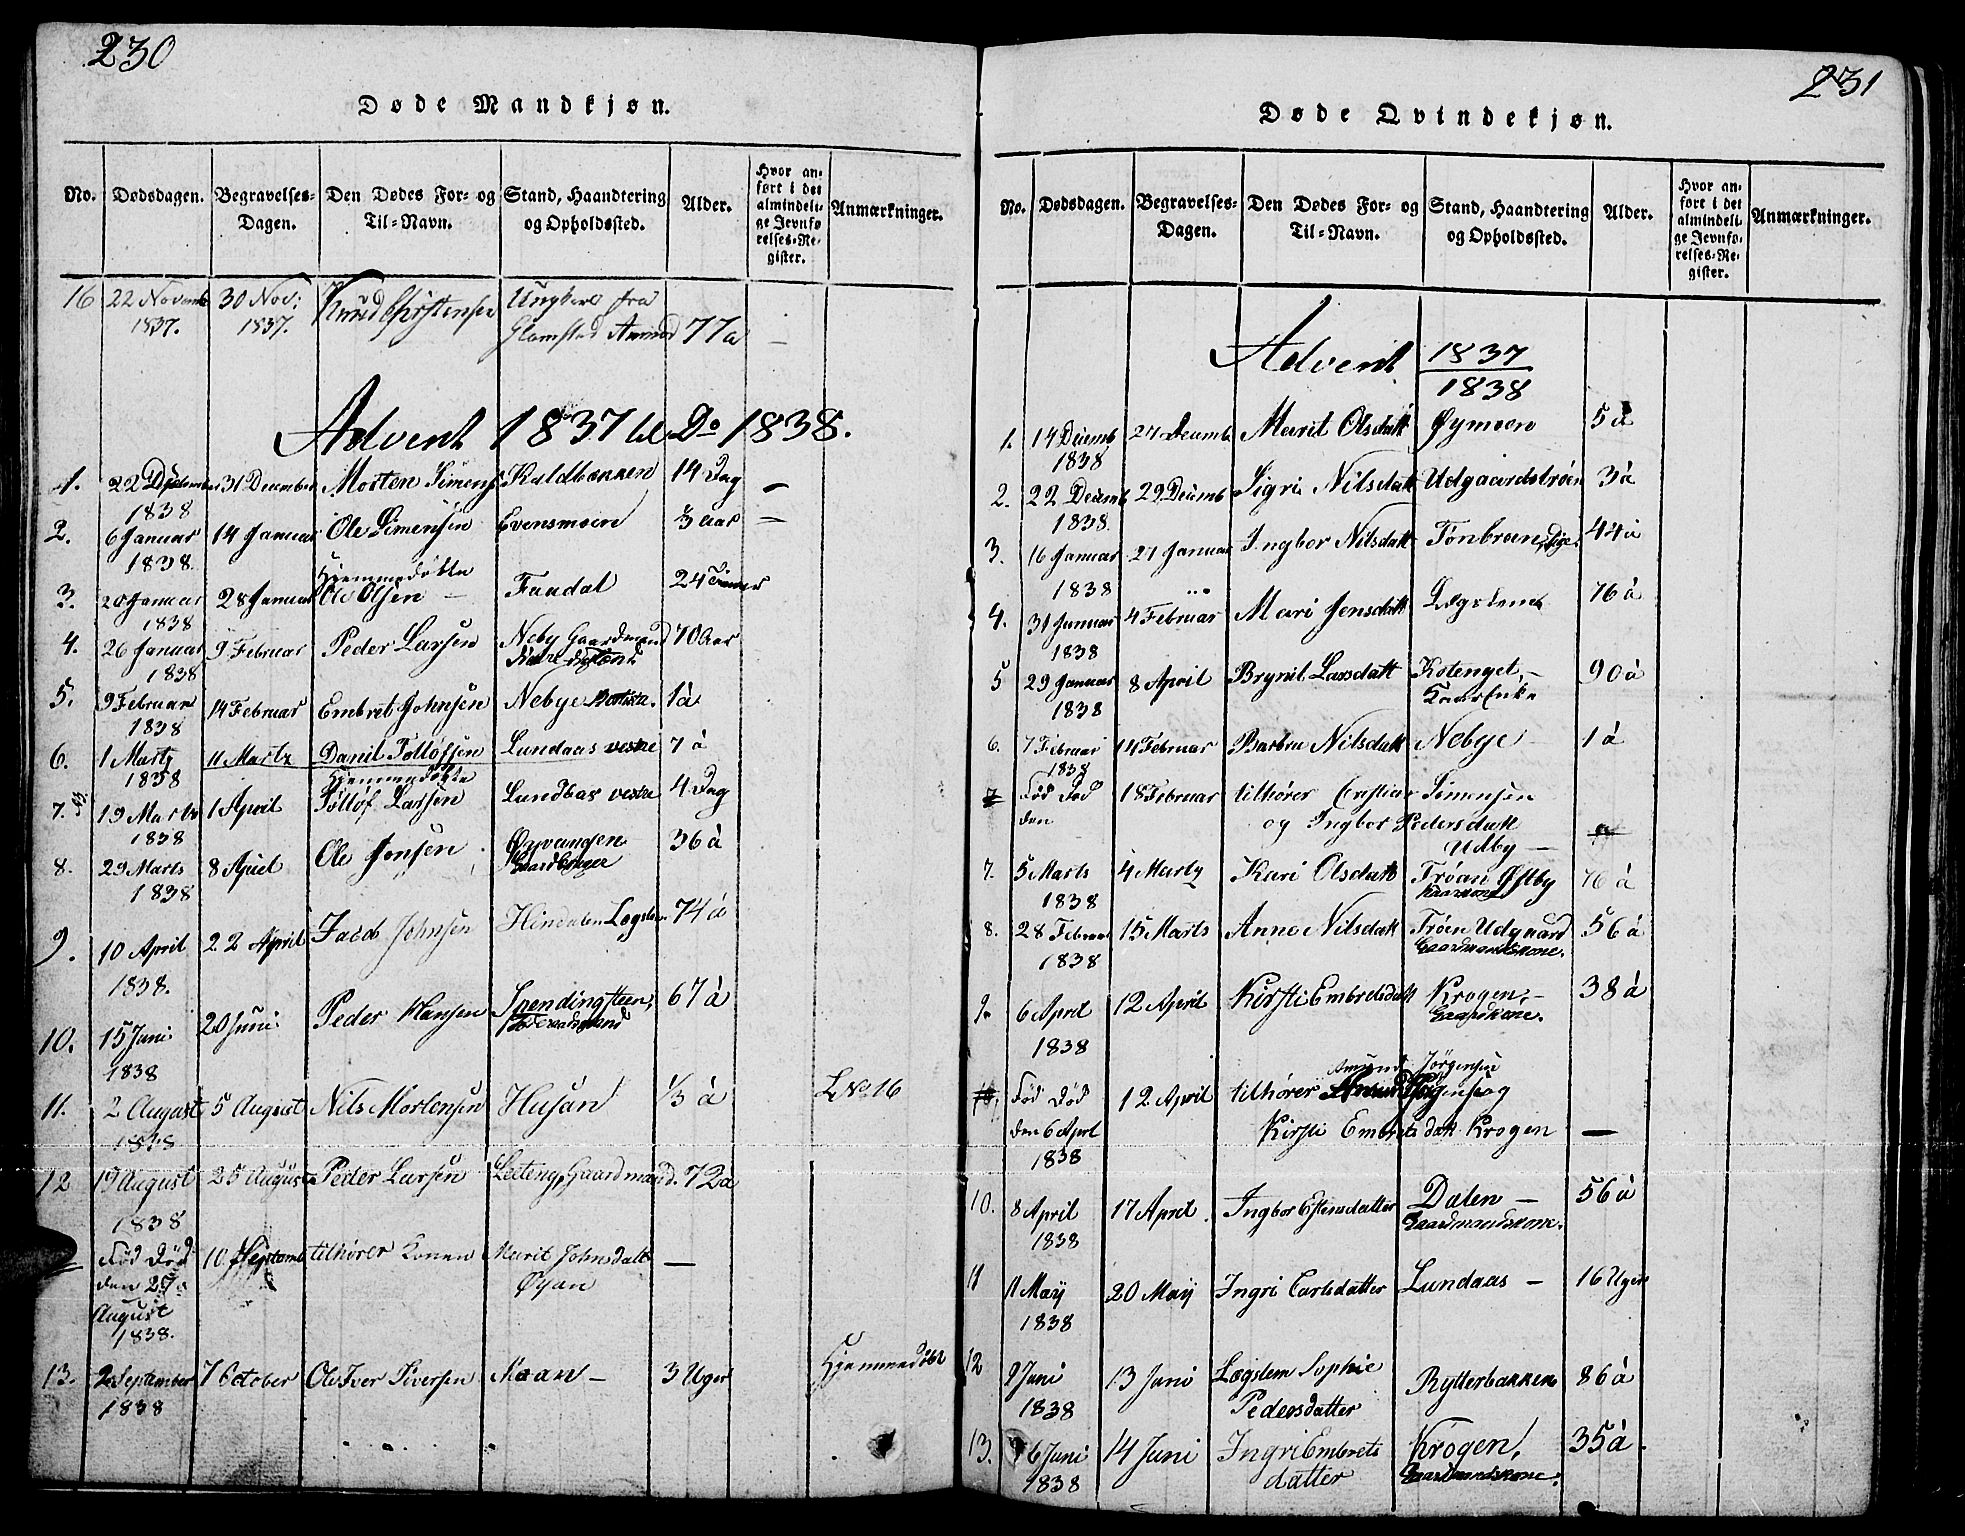 230
Døde Mandkjøn.
No. Dødsdagen. Begravelses-Dagen. Den Dødes For- og Til-Navn. Stand, Haandtering og Opholdssted. Alder. Hvor anført i det almindelige Jevnførelses-Register. Anmærkninger.
16 22 Novemb 30 Nov: Knud Christensen
1837. 1837. 77 a –
Advent 1837 til Do 1838.
1. 22 December 31 December Morten Simens Kuldbækken 14 Dag –
1838
2. 6 Januar 14 Januar Ole Simensen Evensmoen 3 Aar –
1838.
Hjemmedøbte
3. 20 Januar 28 Januar Ole Olsen – Faudal 24 Timer
1838
4. 26 Januar 9 Februar Peder Larsen Neby Gaardmand 70 Aar
1838
5. 9 Februar 14 Februar Embret Johnsen Nebye 1 à
1838
6. 1 Marts 11 Marts Danil Tolløfsen Lundaas vestre 7 à
1838
Hjemmedøbte
7. 19 Marts 1 April Tølløf Larsen Lundaas vestre 4 Dag
1838
8. 29 Marts 8 April Ole Jonsen Gaardbruger 36 à
1838
9. 10 April 22 April Jacob Johnsen Hindalen 74 à
1838.
10. 15 Juni 20 Juni Peder Hansen 67 à
1838
11. 2 August 5 August Nils Mortensen Husan 1/3 à L No 16
1838
12 19 August 25 August Peder Larsen Gaardmand. 72 à
1838
Fød Død 10 Septemb tilhører Konen Marit Johnsdatt –
den 27 Øyan
August
1838.
13. 2 September 7 October Ole Iver Iversen Moan – 3 Uger Hjemmedøbt
1838
231
Døde Qvindekjøn.
No. Dødsdagen. Begravelses-Dagen. Den Dødes For- og Til-Navn. Stand, Haandtering og Opholdssted. Alder. Hvor anført i det almindelige Jevnførelses-Register. Anmærkninger.
Advent 1837
1838
1. 17 Decemb 27 Decemb Marit Olsdatt Øymoen 5 à
1838
2. 22 Decemb 29 Decemb Sigri Nilsdatt Udgaardstrøen 3 à
1838.
3. 16 Januar 27 Januar Ingbor Nilsdatt 44 à
1838
4. 31 Januar 4 Februar Mari Jensdatt 76 à
1838
5 29 Januar 8 April Brynil Larsdatt Kotenget – 90 à
1838 Enke
6. 7 Februar 14 Februar Barbru Nilsdatt Nebye 1 à
1838
7 Fød Død 18 Februar tilhører Cristian Simensen
den og Ingbor Pedersdatt
Udby –
7. 5 Marts 4 Marts Kari Olsdatt Trøan Østby 76 à
1838
8. 28 Februar 15 Marts Anne Nilsdatt Trøen Udgaard 56 à
1838 Gaardmandskone.
9. 6 April 12 April Kirsti Embretsdatt Krogen, – 38 à
1838
Amund Jörgensen
10. Fød Død 12 April tilhører og
den 6 April Kirsti Embretsdatt Krogen –
1838
10. 8 April 17 April. Ingbor Estensdatter Dalen – 56 à
1838 Gaardmandskone.
11 11 Maij 20 Maij Ingri Carlsdatter Lundaas – 16 Uger
1838
12 9 Juni 13 Juni Lægslem Sophie Rytterbakken 86 à
1838 Pedersdatter
13. 6 Juni 14 Juni Ingri Embrets Krogen, 35 à
1838 datter Gaardmandskone.